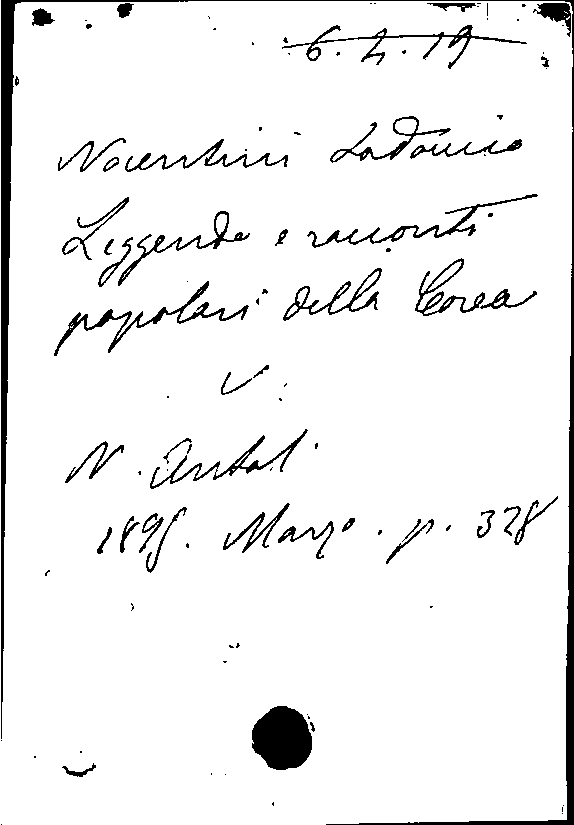 6. 2. 19
Nocentini Lodovico
Leggende e racconti
popolari della Corea
V.
N. Antol.
1895. Marzo. p. 328